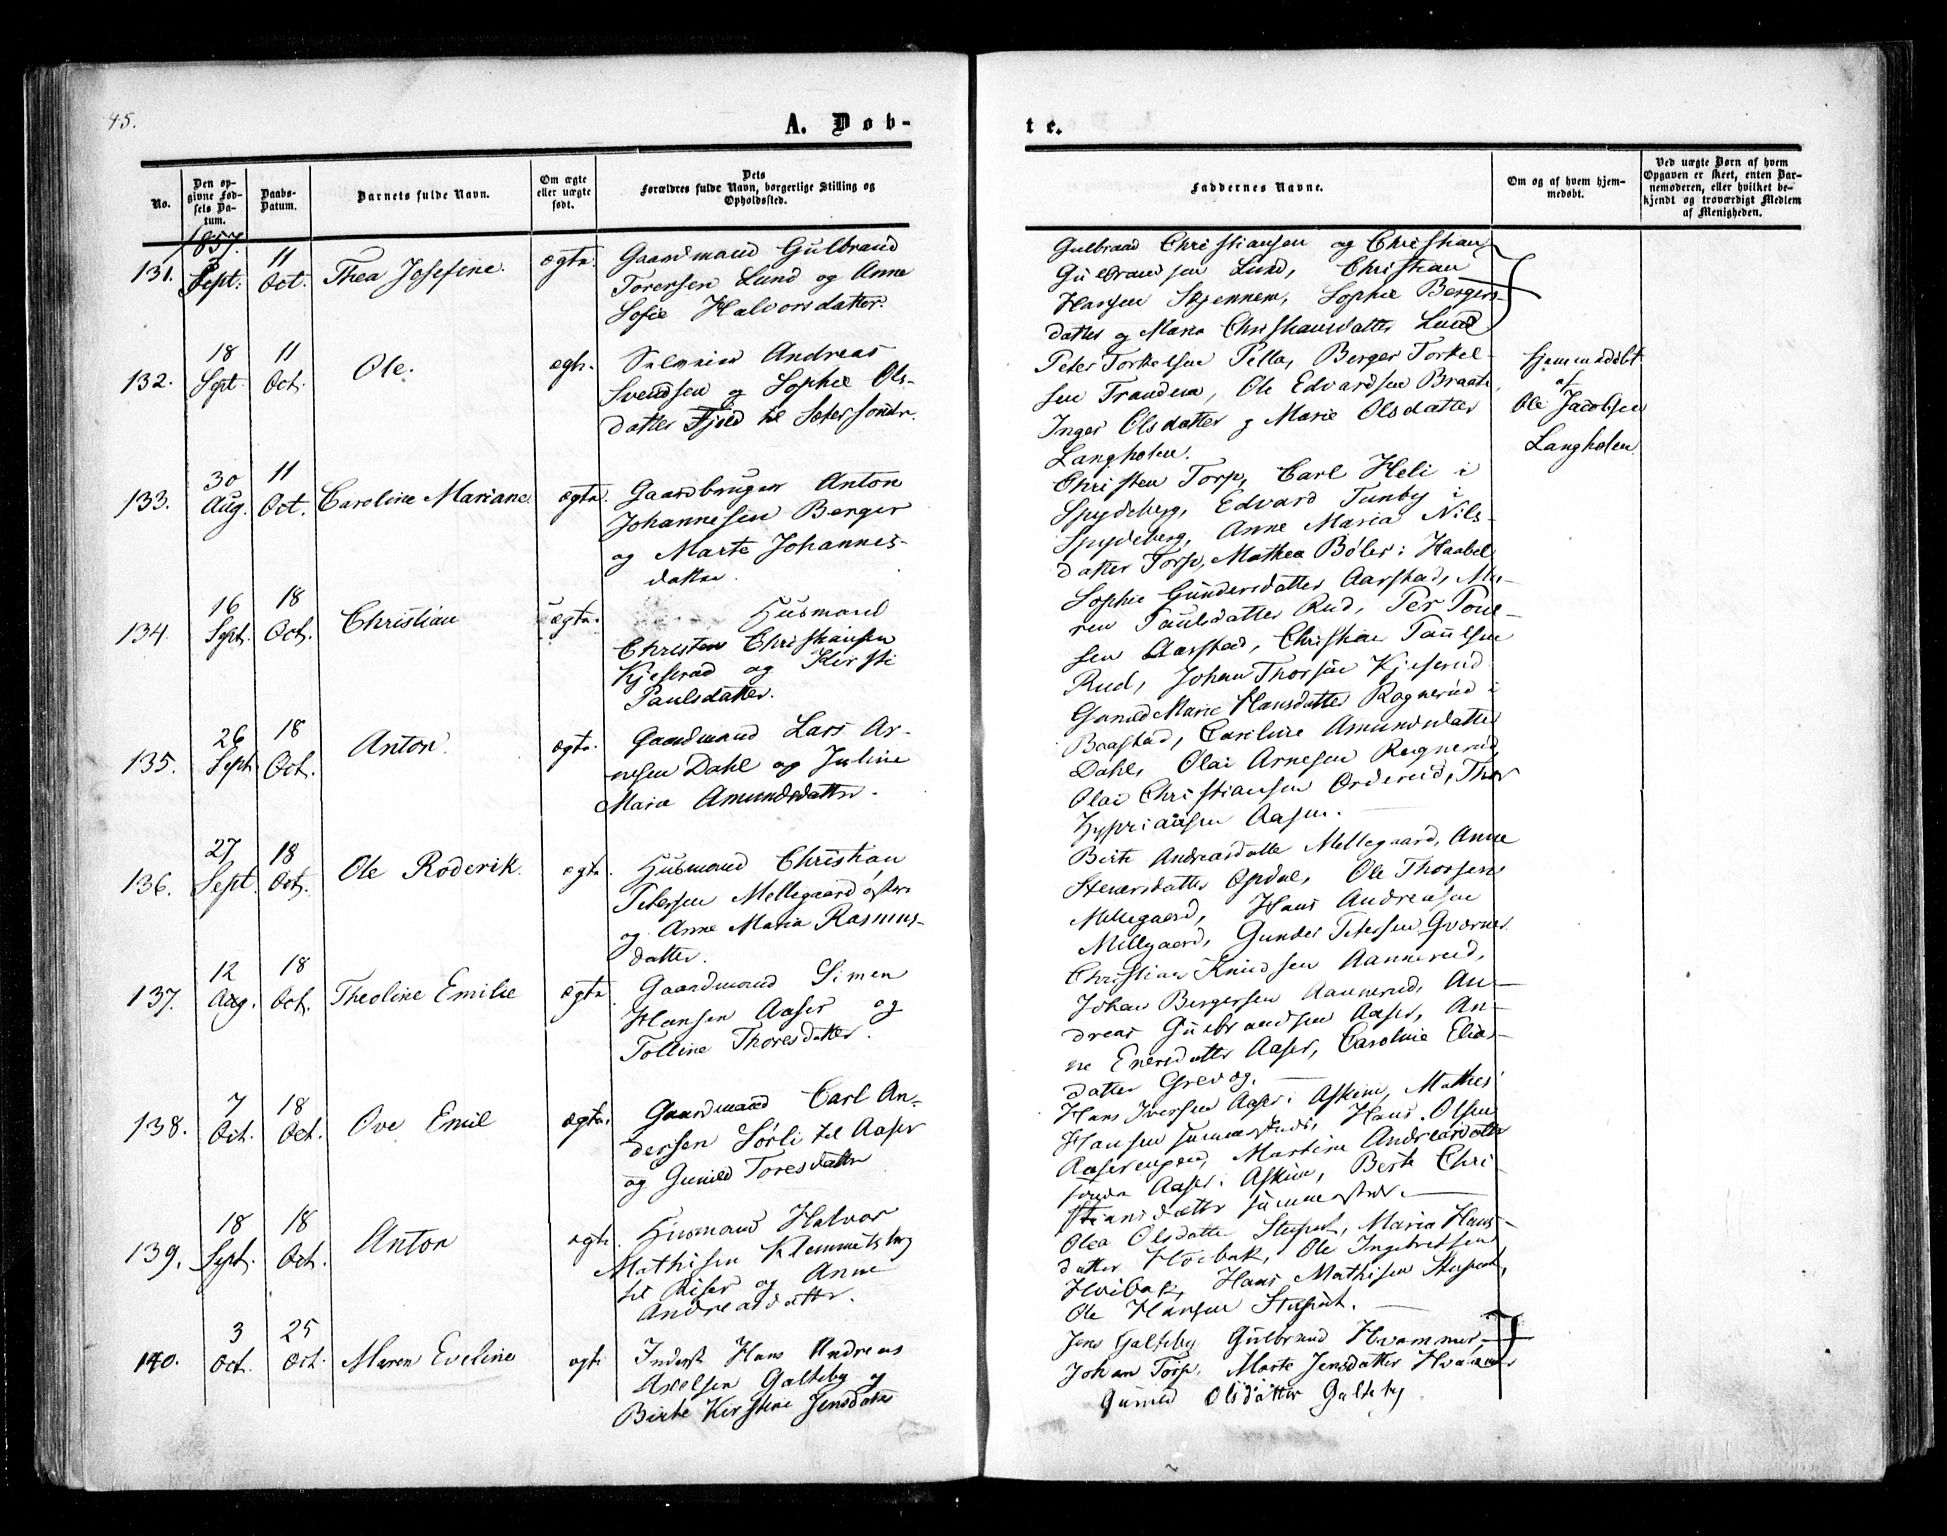 45.
A. Døb-
te.
No.
Den op-
givne Fød-
sels Da-
tum.
Daabs-
Datum.
Barnets fulde Navn.
Om ægte
eller uægte
født.
Dets
Forældres fulde Navn, borgerlige Stilling og
Opholdssted.
Faddernes Navne.
Om og af hvem hjem-
medøbt.
Ved uægte Børn af hvem
Opgaven er skeet, enten Bar-
nemoderen, eller hvilket be-
kjendt og troværdigt Medlem
af Menigheden.
1857.
131. Sept. 11 Oct. Thea Josefine. ægte.
Gaardmand Gulbrand
Torersen Lund og Anne
Sofie Halvorsdatter.
Gulbrand Christiansen og Christian
Gulbrandsen Lund, Christian
Hansen Skjennem, Sophie Bergers-
datter og Maria Christiansdatter Lund
132. 18 Sept. 11 Oct. Ole. ægte.
Andreas
Svendsen og Sophie Ols-
datter Fjeld til
Peter Torkelsen Pella, Berger Torkel-
sen Trandem, Ole Edvardsen Braate,
Inger Olsdatter og Marie Olsdatter
Langholen.
Hjemmedøbt
af
Ole Jacobsen
Langholen
133. 30 Aug. 11 Oct. Caroline Mariane. ægte.
Gaardbruger Anton
Johannesen Berger
og Marte Johannes-
datter.
Christen Torp, Carl Heli i
Spydeberg, Edvard Tunby i
Spydeberg, Anne Maria Nils-
datter Torp, Mathea Bøler i Haabøl
134. 16 Sept. 18 Oct. Christian ægte.
Husmand
Christen Christiansen
Kjeserud og Kirsti
Paulsdatter.
Sophie Gundersdatter Aarstad, Ma-
ren Paulsdatter Rud, Per Poul-
sen Aarstad, Christian Paulsen
Rud, Johan Thorsen Kjeserud
135. 26 Sept. 18 Oct. Anton. ægte.
Gaardmand Lars Ar-
nesen Dahl og Juline
Maria Amundsdatter.
Gunild Marie Hansdatter Rognerud i
Baastad, Caroline Amundsdatter
Dahl, Olai Arnesen Rognerud,
Olai Christiansen Orderud, Thor
Zypriansen Aasen.
136. 27 Sept. 18 Oct. Ole Roderik. ægte.
Husmand Christian
Petersen Mellegaard østre
og Anne Maria Rasmus-
datter.
Birte Andreasdatter Mellegaard, Anne
Stenersdatter Opdal, Ole Thorsen
Mellegaard, Hans Andreasen
Mellgaard, Gunder Petersen Qværner.
137. 12 Aug. 18 Oct. Theoline Emilie ægte.
Gaardmand Simen
Hansen Aaser og
Tolline Thoresdatter.
Christian Knudsen Aannerud,
Johan Bergersen Aannerud, An-
dreas Gulbrandsen Aaser, An-
ne Enersdatter Aaser, Caroline Elias-
datter Grevog.
138. 7 Oct. 18 Oct. Ove Emil ægte.
Gaardmand Carl An-
dersen Sørli til Aaser
og Gunild Toresdatter
Hans Iversen Aaser i Askim, Mathis
Hansen Hans Olsen
Aaserengen, Martine Andreasdatter
Aaser i Askim, Birte Chri-
stiansdatter
139. 18 Sept. 18 Oct. Anton ægte.
Husmand Halvor
Mathisen Klemmetsberg
til Riser og Anne
Andreasdatter.
Olea Olsdatter Stuput, Maria Hans-
datter Hvibak, Ole Ingebretsen
Hvibak, Hans Mathisen Stuput,
Ole Hansen Stuput.
140. 3 Oct. 25 Oct. Maren Eveline ægte
Inderst Hans Andreas
Axelsen Galteby og
Birte Kirstine Jensdatter
Jens Galteby, Gulbrand Hvammer,
Johan Torp, Marte Jensdatter Hvammer
Gunild Olsdatter Galteby